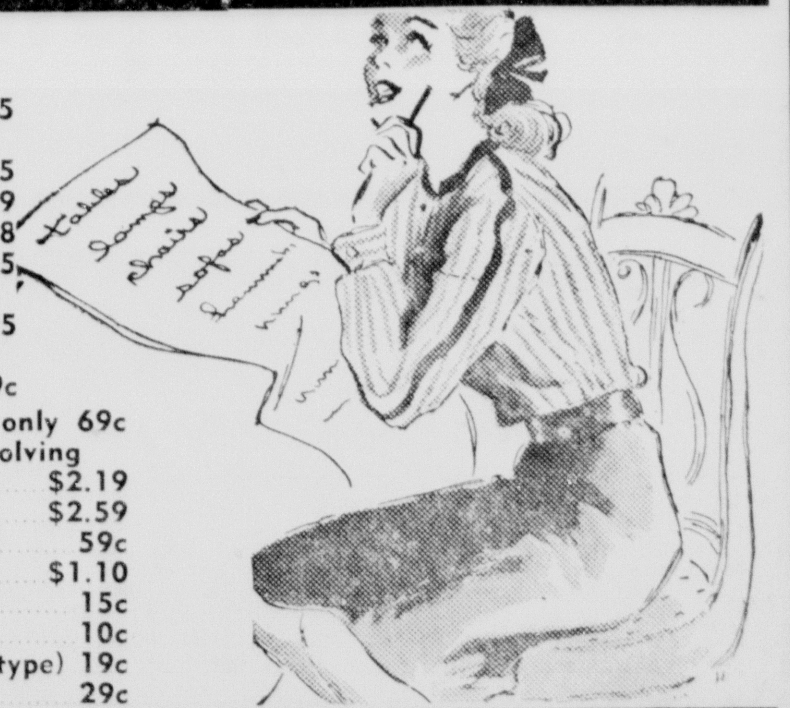 5
5
9
8
5
5
c
only 69c
olving
$2.19
$2.59
59c
$1.10
15c
10c
type) 19c
29c
tables
lamps
chairs
sofas